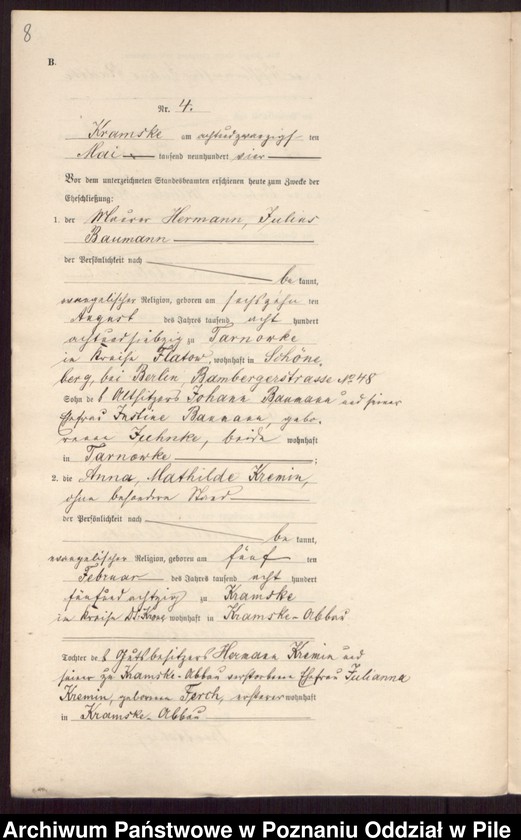 8
B.
Nr. 4.
Kramske am achtundzwanzigs ten
Mai tausend neunhundert vier
Vor dem unterzeichneten Standesbeamten erschienen heute zum Zwecke der
Eheschließung:
1. der Maurer Hermann, Julius
Baumann
der Persönlichkeit nach
be kannt,
evangelischer Religion, geboren am sechszehn ten
August des Jahres tausend acht hundert
achtundsiebzig zu Tarnowke
in Kreise Flatow, wohnhaft in Schöne,
berg, bei Berlin Bambergerstrasse No 48
Sohn des Altsitzers Johann Baumann und seiner
Ehefrau Justine Baumann, gebo,
renen Juhnke, beide wohnhaft
in Tarnowke ;
2. die Anna, Mathilde Kremin,
ohne besondern Stand
der Persönlichkeit nach
be kannt,
evangelischer Religion, geboren am fünf ten
Februar des Jahres tausend acht hundert
fünfundachtzig zu Kramske
in Kreise Dt. Krone wohnhaft in Kramske-Abbau
Tochter des Gutsbesitzers Hermann Kremin und
seiner zu Kramske-Abbau verstorbenen Ehefrau Julianna
Kremin, geborenen Ferch, ersterer wohnhaft
in Kramske-Abbau
Archiwum Państwowe w Poznaniu Oddział w Pile